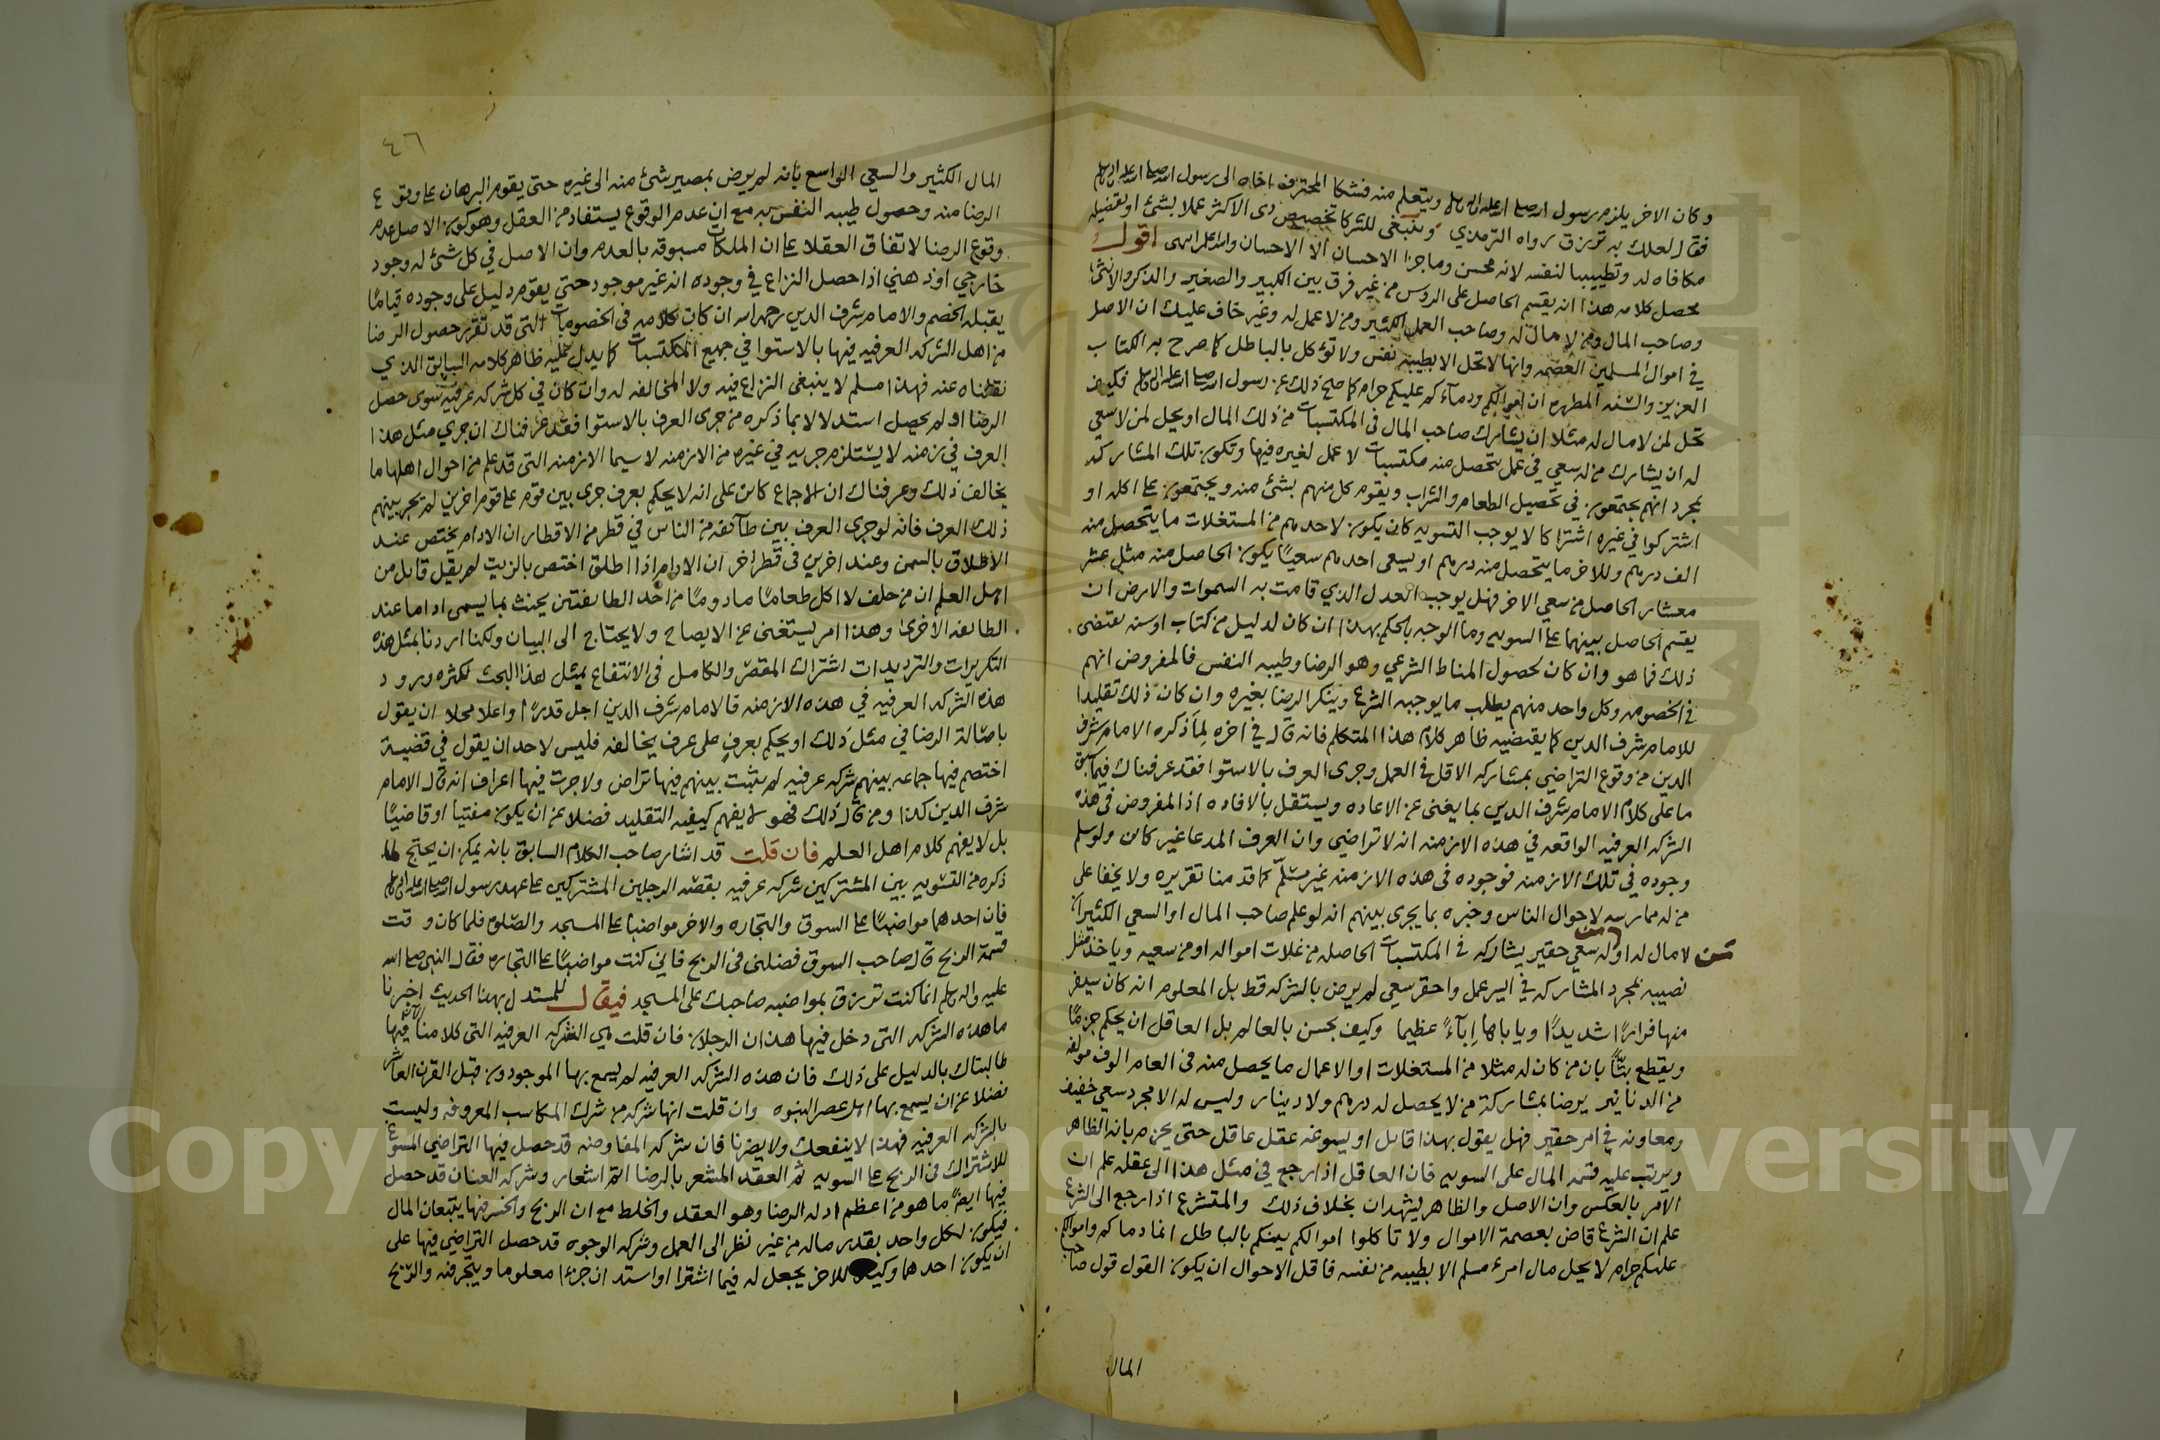 وكان الاخر يلزم رسول الله صلى الله عليه واله وسلم ويتعلم منه فشكا المحترف اخاه الى رسول الله صلى الله عليه واله وسلم
فقال لعلك به ترزق رواه الترمذي وينبغي للشركا تخصيص ذى الاكثر عملا بشئ او تفضيله
مكافاه له وتطييبا لنفسه لانه محسن وما جزا الاحسان الا الاحسان والله اعلم انتهى اقول
محصل كلامه هذا انه يقسم الحاصل على الروس من غير فرق بين الكبير والصغير والذكر والانثى
وصاحب المال ومن لا مال له وصاحب العمل الكثير ومن لا عمل له وغير خاف عليك ان الاصل
في اموال المسلمين العصمه وانها لا تحل الا بطيبه نفس ولا تؤكل بالباطل كما صرح به الكتاب
العزيز والسنه المطهره ان اموالكم ودماءكم عليكم حرام كما صح ذلك عن رسول الله صلى الله عليه واله وسلم فكيف
تحل لمن لا مال له مثلا ان يشارك صاحب المال في المكتسبات من ذلك المال او يحل لمن لا سعي
له ان يشارك من له سعي في عمل يتحصل منه مكتسبات لا عمل لغيره فيها وتكون تلك المشاركه
بمجرد انهم يجتمعون في تحصيل الطعام والشراب ويقوم كل منهم بشئ منه ويجتمعون على اكله او
اشتركوا في غيره اشتراكا لا يوجب التسويه كان يكون لاحدهم من المستغلات ما يتحصل منه
الف درهم وللاخر ما يتحصل منه درهم او يسعى احدهم سعيا يكون الحاصل منه مثل عشر
معشار الحاصل من سعي الاخر فهل يوجب العدل الذي قامت به السموات والارض ان
يقسم الحاصل بينهما على السويه وما الوجه بالحكم بهذا ان كان لدليل من كتاب او سنه تقتضى
ذلك فما هو وان كان لحصول المناط الشرعي وهو الرضا وطيبه النفس فالمفروض انهم
في الخصومه وكل واحد منهم يطلب ما يوجبه الشرع وينكر الرضا بغيره وان كان ذلك تقليدا
للامام شرف الدين كما يقتضيه ظاهر كلام هذا المتكلم فانه قال في اخره لما ذكره الامام شرف
الدين من وقوع التراضي بمشاركه الاقل في العمل وجرى العرف بالاستوا فقد عرفناك فيما سبق
ما على كلام الامام شرف الدين بما يغنى عن الاعاده ويستقل بالافاده اذ المفروض في هذه
الشركه العرفيه الواقعه في هذه الازمنه انه لا تراضي وان العرف المدعا غير كائن ولو سلم
وجوده في تلك الازمنه فوجوده في هذه الازمنه غير مسلم كما قدمنا تقريره ولا يخفا على
من له ممارسه لاحوال الناس وخبره بما يجرى بينهم انه لو علم صاحب المال او السعي الكثير ان
من لا مال له او من له سعي حقير يشاركه في المكتسبات الحاصله من غلات امواله او من سعيه وياخذ مثل
نصيبه لمجرد المشاركه في ايسر عمل واحقر سعي لم يرض بالشركه قط بل المعلوم انه كان سيفر
منها فرارا شديدا وياباها اباء عظيما وكيف يحسن بالعالم بل العاقل ان يحكم جزما
ويقطع بتا بان من كان له مثلا من المستغلات او الاعمال ما يحصل منه في العام الوف مولفه
من الدنانير يرضا بمشاركة من لا يحصل له درهم ولا دينار وليس له الا مجرد سعي خفيف
ومعاونه في امر حقير فهل يقول بهذا قايل او يسوغه عقل عاقل حتى يجزم بانه الظاهر
ويرتب عليه قسمه المال على السويه فان العاقل اذا رجع في مثل هذا الى عقله علم ان
الامر بالعكس وان الاصل والظاهر يشهدان بخلاف ذلك والمتشرع اذا رجع الى الشرع
علم ان الشرع قاض بعصمة الاموال ولا تاكلوا اموالكم بينكم بالباطل انما دماكم واموالكم
عليكم حرام لا يحل مال امرء مسلم الا بطيبه من نفسه فاقل الاحوال ان يكون القول قول صاحب
المال
٤٦
المال الكثير والسعي الواسع بانه لم يرض بمصير شئ منه الى غيره حتى يقوم البرهان على وقوع
الرضا منه وحصول طيبه النفس به مع ان عدم الوقوع يستفاد من العقل وهو كون الاصل عدم
وقوع الرضا لاتفاق العقلا على ان الملكات مسبوقه بالعدم وان الاصل في كل شئ له وجود
خارجي او ذهني اذا حصل النزاع في وجوده انه غير موجود حتى يقوم دليل على وجوده قياما
يقبله الخصم والامام شرف الدين رحمه الله ان كان كلامه في الخصومات التى قد تقرر حصول الرضا
من اهل الشركه العرفيه فيها بالاستوا في جميع المكتسبات كما يدل عليه ظاهر كلامه السابق الذي
نقلناه عنه فهذا مسلم لا ينبغى النزاع فيه ولا المخالفه له وان كان في كل شركه عرفيه سوى حصل
الرضا او لم يحصل استدلالا بما ذكره من جرى العرف بالاستوا فقد عرفناك ان جري مثل هذا
العرف في زمنه لا يستلزم جريه في غيره من الازمنه لا سيما الازمنه التى قد علم من احوال اهلها ما
يخالف ذلك وعرفناك ان الاجماع كائن على انه لا يحكم بعرف جرى بين قوم على قوم اخرين لم يجر بينهم
ذلك العرف فانه لو جرى العرف بين طائفه من الناس في قطر من الاقطار ان الادام يختص عند
الاطلاق بالسمن وعند اخرين في قطر اخر ان الادام اذا اطلق اختص بالزيت لم يقل قائل من
اهل العلم ان من حلف لا اكل طعاما مادوما من احد الطائفتين يحنث بما يسمى اداما عند
الطائفه الاخرى وهذا امر يستغنى عن الايضاح ولا يحتاج الى البيان ولكنا اردنا بمثل هذه
التكريرات والترديدات اشتراك المقصر والكامل في الانتفاع بمثل هذا البحث لكثره ورود
هذه الشركه العرفيه في هذه الازمنه فالامام شرف الدين اجل قدرا واعلا محلا ان يقول
باصالة الرضا في مثل ذلك او يحكم بعرف على عرف يخالفه فليس لاحد ان يقول في قضية
اختصم فيها جماعه بينهم شركه عرفيه لم يثبت بينهم فيها تراض ولا جرت فيها اعراف انه قال الامام
شرف الدين كذا ومن قال ذلك فهو لا يفهم كيفيه التقليد فضلا عن ان يكون مفتيا او قاضيا
بل لا يفهم كلام اهل العلم فان قلت قد اشار صاحب الكلام السابق بانه يمكن ان يحتج لما
ذكره من التسويه بين المشتركين شركه عرفيه بقصه الرجلين المشتركين على عهد رسول الله صلى الله عليه واله وسلم
فان احدهما مواضبا على السوق والتجاره والاخر مواضبا على المسجد والصلوه فلما كان وقت
قسمة الربح قال صاحب السوق فضلنى في الربح فاني كنت مواضبا على التجاره فقال النبي صلى الله
عليه واله وسلم انما كنت ترزق بمواضبه صاحبك على المسجد فيقال للمستدل بهذا الحديث اخبرنا
ما هذه الشركه التى دخل فيها هذان الرجلان فان قلت هي الشركه العرفيه التى كلامنا فيها
طالبتاك بالدليل على ذلك فان هذه الشركه العرفيه لم يسمع بها الموجودون قبل القرن العاشر
فضلا عن ان يسمع بها اهل عصر النبوه وان قلت انها شركه من شرك المكاسب المعروفه وليست
بالشركه العرفيه فهذا لا ينفعك ولا يضرنا فان شركه المفاوضه قد حصل فيها التراضي المسوغ
للاشتراك في الربح على السويه ثم العقد المشعر بالرضا اتم اشعار وشركه العنان قد حصل
فيها ايضا ما هو من اعظم ادله الرضا وهو العقد والخلط مع ان الربح والخسر فيها يتبعان المال
فيكون لكل واحد بقدر ماله من غير نظر الى العمل وشركه الوجوه قد حصل التراضي فيها على
ان يكون احدهما وكيلا للاخر يجعل له فيما اشترا او استدان جزءا معلوما ويتجر فيه والربح